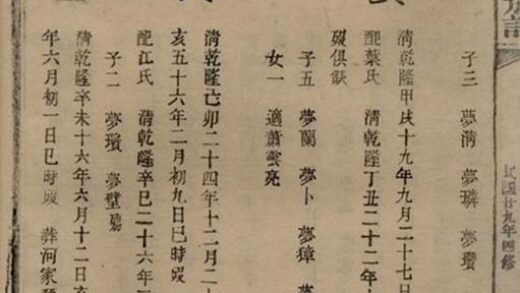 民國廿九年四修
子三 夢清 夢璘 夢瓚
清乾隆甲戌十九年九月二十七日
配葉氏 清乾隆丁丑二十二年十
歿俱缺
子五 夢蘭 夢卜 夢獐 夢
女一 適蕭雲亮
清乾隆亡卯二十四年十二月二十
亥五十六年二月初九日巳時歿
配江氏 清乾隆辛巳二十六年
子二 夢瓚 夢璧
清乾隆辛未十六年六月十二日亥
年六月初一日巳時歿 葬河家